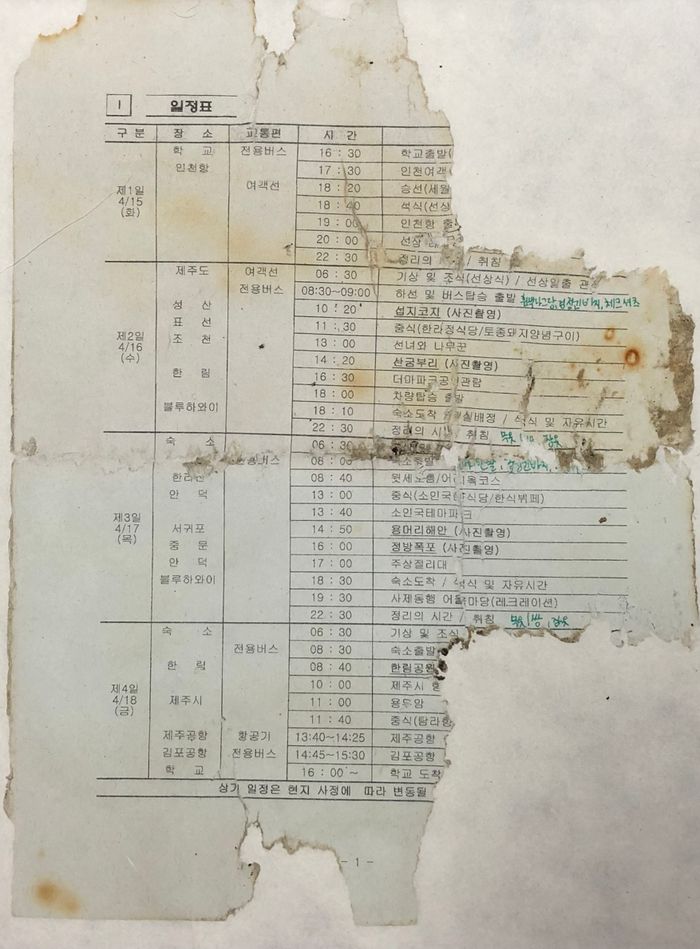 1 일정표
구 분 장 소 교통편 시 간
제1일
4/15
(화)
학 교 전용버스 16 : 30 학교출발(
인천항 17 : 30 인천여객
여객선 18 : 20 승선(세월
18 : 40 석식(선상
19 : 00 인천항 출
20 : 00 선상
22 : 30 정리의 / 취침
제2일
4/16
(수)
제주도 여객선 06 : 30 기상 및 조식(선상식) / 선상일출 관
전용버스 08:30~09:00 하선 및 버스탑승 출발
성 산 10 : 20 섭지코지 (사진촬영)
표 선 11 : 30 중식(한라정식당/토종돼지양념구이)
조 천 13 : 00 선녀와 나무꾼
14 : 20 산굼부리 (사진촬영)
한 림 16 : 30 더마파크공연관람
18 : 00 차량탑승 출발
블루하와이 18 : 10 숙소도착 / 실배정 / 석식 및 자유시간
22 : 30 정리의 시간 / 취침
제3일
4/17
(목)
숙 소 06 : 30
전용버스 08 : 00 숙소출발
한라산 08 : 40 윗세오름/어리목코스
안 덕 13 : 00 중식(소인국 식당/한식뷔페)
13 : 40 소인국테마파크
서귀포 14 : 50 용머리해안 (사진촬영)
중 문 16 : 00 정방폭포 (사진촬영)
안 덕 17 : 00 주상절리대
블루하와이 18 : 30 숙소도착 / 석식 및 자유시간
19 : 30 사제동행 어울마당(레크레이션)
22 : 30 정리의 시간 / 취침
제4일
4/18
(금)
숙 소 06 : 30 기상 및 조식
전용버스 08 : 30 숙소출발
한 림 08 : 40 한림공원
10 : 00 제주시
제주시 11 : 00 용두암
11 : 40 중식(탐라
제주공항 항공기 13:40~14:25 제주공항
김포공항 전용버스 14:45~15:30 김포공항
학 교 16 : 00 ~ 학교 도착
상기 일정은 현지 사정에 따라 변동될
- 1 -